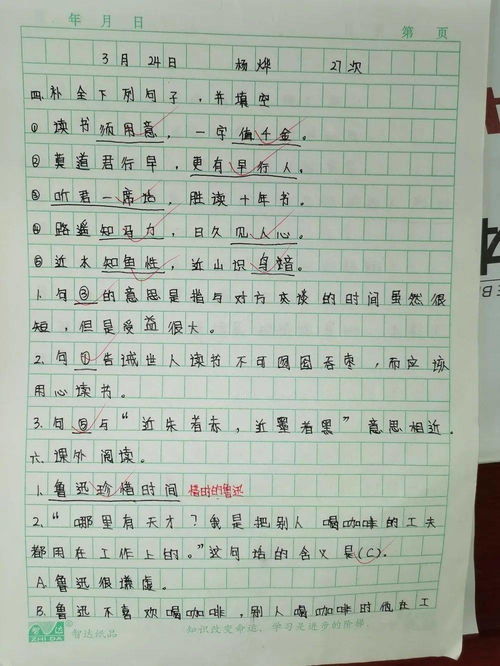 年 月 日 第 页
3月24日 杨烨 27次
四.补全下列句子,并填空
①读书须用意,一字值千金。
②莫道君行早,更有早行人。
③听君一席话,胜读十年书。
④路遥知马力,日久见人心。
⑤近水知鱼性,近山识鸟音。
1.句③的意思是指与对方交谈的时间虽然很
短,但是受益很大。
2.句①告诫世人读书不可囫囵吞枣,而应该
用心读书。
3.句⑤与“近朱者赤,近墨者黑”意思相近.
六.课外阅读。
1.鲁迅珍惜时间 惜时的鲁迅
2.“哪里有天才?我是把别人喝咖啡的工夫
都用在工作上的。”这句话的含义是(C).
A.鲁迅很谦虚。
B.鲁迅不喜欢喝咖啡,别人喝咖啡时他在工
智达 ZHI DA 智达纸品 知识改变命运,学习是进步的阶梯.